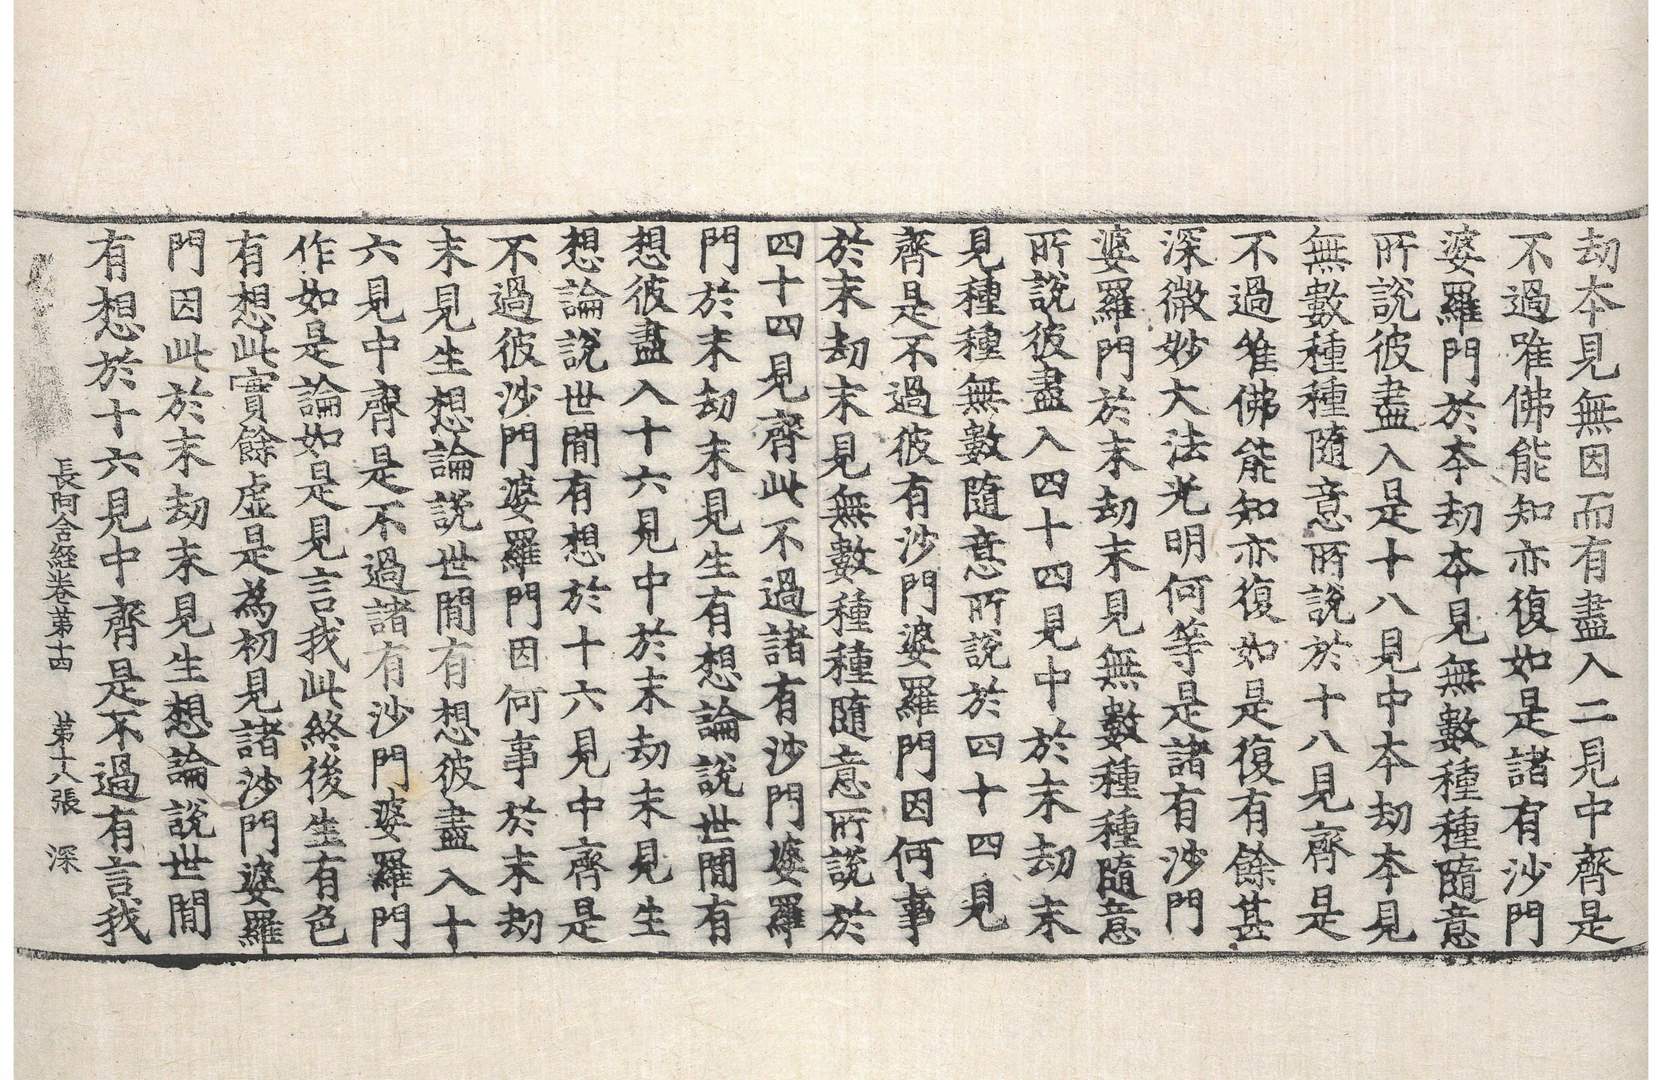 劫本見無因而有盡入二見中齊是
不過唯佛能知亦復如是諸有沙門
婆羅門於本劫本見無數種種隨意
所說彼盡入是十八見中本劫本見
無數種種隨意所說於十八見齊是
不過唯佛能知亦復如是復有餘甚
深微妙大法光明何等是諸有沙門
婆羅門於末劫末見無數種種隨意
所說彼盡入四十四見中於末劫末
見種種無數隨意所說於四十四見
齊是不過彼有沙門婆羅門因何事
於末劫末見無數種種隨意所說於
四十四見齊此不過諸有沙門婆羅
門於末劫末見生有想論說世間有
想彼盡入十六見中於末劫末見生
想論說世間有想於十六見中齊是
不過彼沙門婆羅門因何事於末劫
末見生想論說世間有想彼盡入十
六見中齊是不過諸有沙門婆羅門
作如是論如是見言我此終後生有色
有想此實餘虛是為初見諸沙門婆羅
門因此於末劫末見生想論說世間
有想於十六見中齊是不過有言我
長阿含經卷第十四 第十八張 深